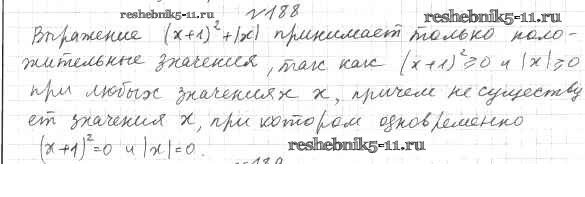 reshebnik5-11.ru №188 reshebnik5-11.ru
Выражение (x+1)²+|x| принимает только поло-
жительные значения, так как (x+1)²≥0 и |x|≥0
при любых значениях x, причем не существу
ет значения x, при котором одновременно
(x+1)²=0 и |x|=0. reshebnik5-11.ru